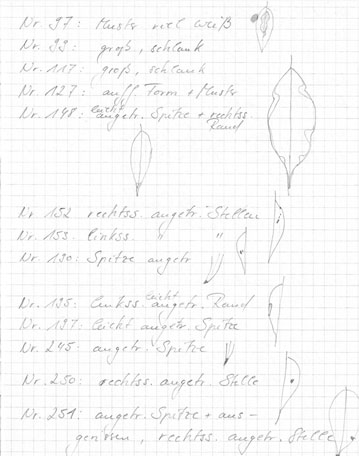 Nr. 97: Muster viel Weiß
Nr. 99: groß, schlank
Nr. 117: groß, schlank
Nr. 127: auff. Form + Muster
Nr. 148: leicht angetr. Spitze + rechtss. Rand
Nr. 152 rechtss. angetr. Stellen
Nr. 153. linkss. " "
Nr. 130: Spitze angetr
Nr. 195: linkss. leicht angetr. Rand
Nr. 197: leicht angetr. Spitze
Nr. 245: angetr. Spitze
Nr. 250: rechtss. angetr. Stelle
Nr. 251: angetr. Spitze + aus-
gerissen, rechtss. angetr. Stelle